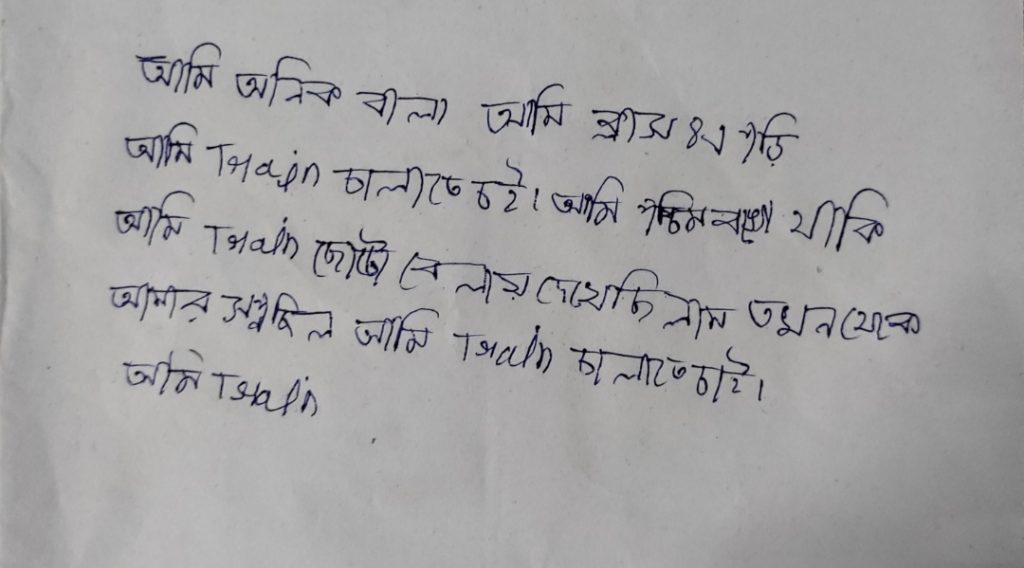 আমি অনিক বালা আমি ক্লাস ৪এ পড়ি
আমি Train চালাতে চাই। আমি পশ্চিমবঙ্গে থাকি
আমি Train ছোটো বেলায় দেখেছিলাম তখন থেকে
আমার সপ্নছিল আমি Train চালাতে চাই।
আমি Train